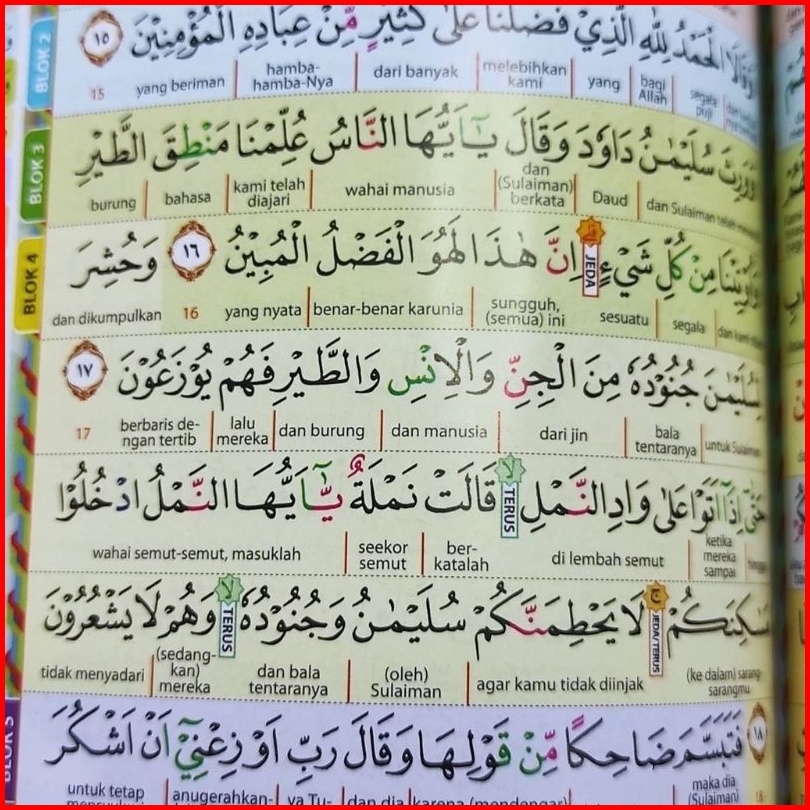 وَقَالَا الْحَمْدُ لِلّٰهِ الَّذِيْ فَضَّلَنَا عَلٰى كَثِيْرٍ مِّنْ عِبَادِهِ الْمُؤْمِنِيْنَ ١٥
segala puji bagi Allah yang melebihkan kami dari banyak hamba-hamba-Nya yang beriman 15
BLOK 2
وَوَرِثَ سُلَيْمٰنُ دَاوٗدَ وَقَالَ يٰٓاَيُّهَا النَّاسُ عُلِّمْنَا مَنْطِقَ الطَّيْرِ
dan Sulaiman telah Daud dan (Sulaiman) berkata wahai manusia kami telah diajari bahasa burung
BLOK 3
وَاُوْتِيْنَا مِنْ كُلِّ شَيْءٍ اِنَّ هٰذَا لَهُوَ الْفَضْلُ الْمُبِيْنُ ١٦ وَحُشِرَ
JEDA
dan kami segala sesuatu sungguh, (semua) ini benar-benar karunia yang nyata 16 dan dikumpulkan
BLOK 4
لِسُلَيْمٰنَ جُنُوْدُهٗ مِنَ الْجِنِّ وَالْاِنْسِ وَالطَّيْرِ فَهُمْ يُوْزَعُوْنَ ١٧
untuk Sulaiman bala tentaranya dari jin dan manusia dan burung lalu mereka berbaris de-ngan tertib 17
حَتّٰىٓ اِذَآ اَتَوْا عَلٰى وَادِ النَّمْلِ لا قَالَتْ نَمْلَةٌ يّٰٓاَيُّهَا النَّمْلُ ادْخُلُوْا
TERUS
ketika mereka sampai di lembah semut ber-katalah seekor semut wahai semut-semut, masuklah
مَسٰكِنَكُمْ ج لَا يَحْطِمَنَّكُمْ سُلَيْمٰنُ وَجُنُوْدُهٗ لا وَهُمْ لَا يَشْعُرُوْنَ
JEDA/TERUS TERUS
(ke dalam) sarang-sarangmu agar kamu tidak diinjak (oleh) Sulaiman dan bala tentaranya (sedang-kan) mereka tidak menyadari
١٨ فَتَبَسَّمَ ضَاحِكًا مِّنْ قَوْلِهَا وَقَالَ رَبِّ اَوْزِعْنِيْٓ اَنْ اَشْكُرَ
18 maka dia (Sulaiman) karena (mendengar) dan dia ya Tu- anugerahkan- untuk tetap
BLOK 5